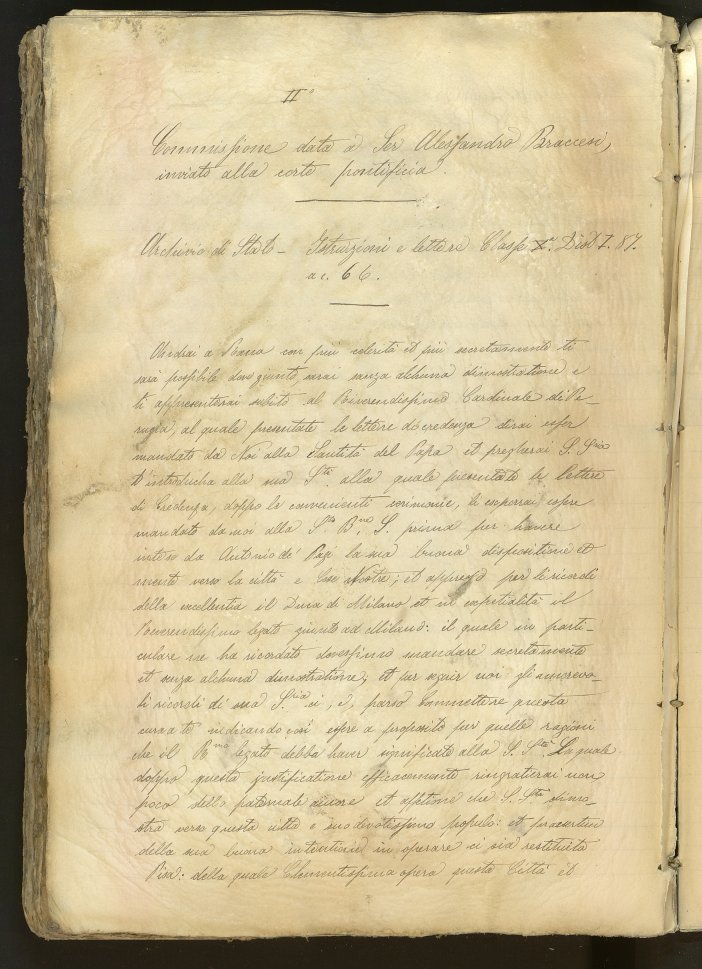 II°
Commissione data a Ser Alessandro Braccesi,
inviato alla corte pontificia.
Archivio di Stato - Istruzioni e lettere Classe X.ª Dist. I. 87.
a c. 66.
Andrai a Roma con più celerità et più secretamente ti
sarà possibile dove giunto, sarai sanza alchuna dimostratione e
ti appresenterai subito al Reverendissimo Cardinale di Pe-
rugia, al quale presentate le lettere di credenza dirai esser
mandato da Noi alla Santità del Papa et pregherai S. S.ria
t'introducha alla sua S.tà alla quale presentate le lettere
di Credenza, doppo le convenienti cerimonie, li esporrai essere
mandato da noi alla S.tà B.ne S. prima per havere
inteso da Antonio de' Pazi la sua buona dispositione et
mente verso la città e Cose Nostre; et appresso per li ricordi
della excellentia il Duca di Milano et in
Reverendissimo legato giunto ad Milano: il quale in parti-
culare ne ha ricordato dovessimo mandare secretamente
et senza alchuna dimostratione, et per seguir noi gli amorevo-
li ricordi di sua S.ria ci, è, parso Commettere questa
cura a te iudicando così essere a proposito per quelle ragioni
che il R.mo legato debba haver significate alla S. S.tà La quale
doppo questa justificatione efficacemente ringratierai non
poco dello paternale amore et affetione che S. S.tà dimo-
stra verso questa città e suo devotissimo populo: et praesertim
della sua buona intentione in operare ci sia restituita
Pisa: della quale Clementissima opera questa Città et